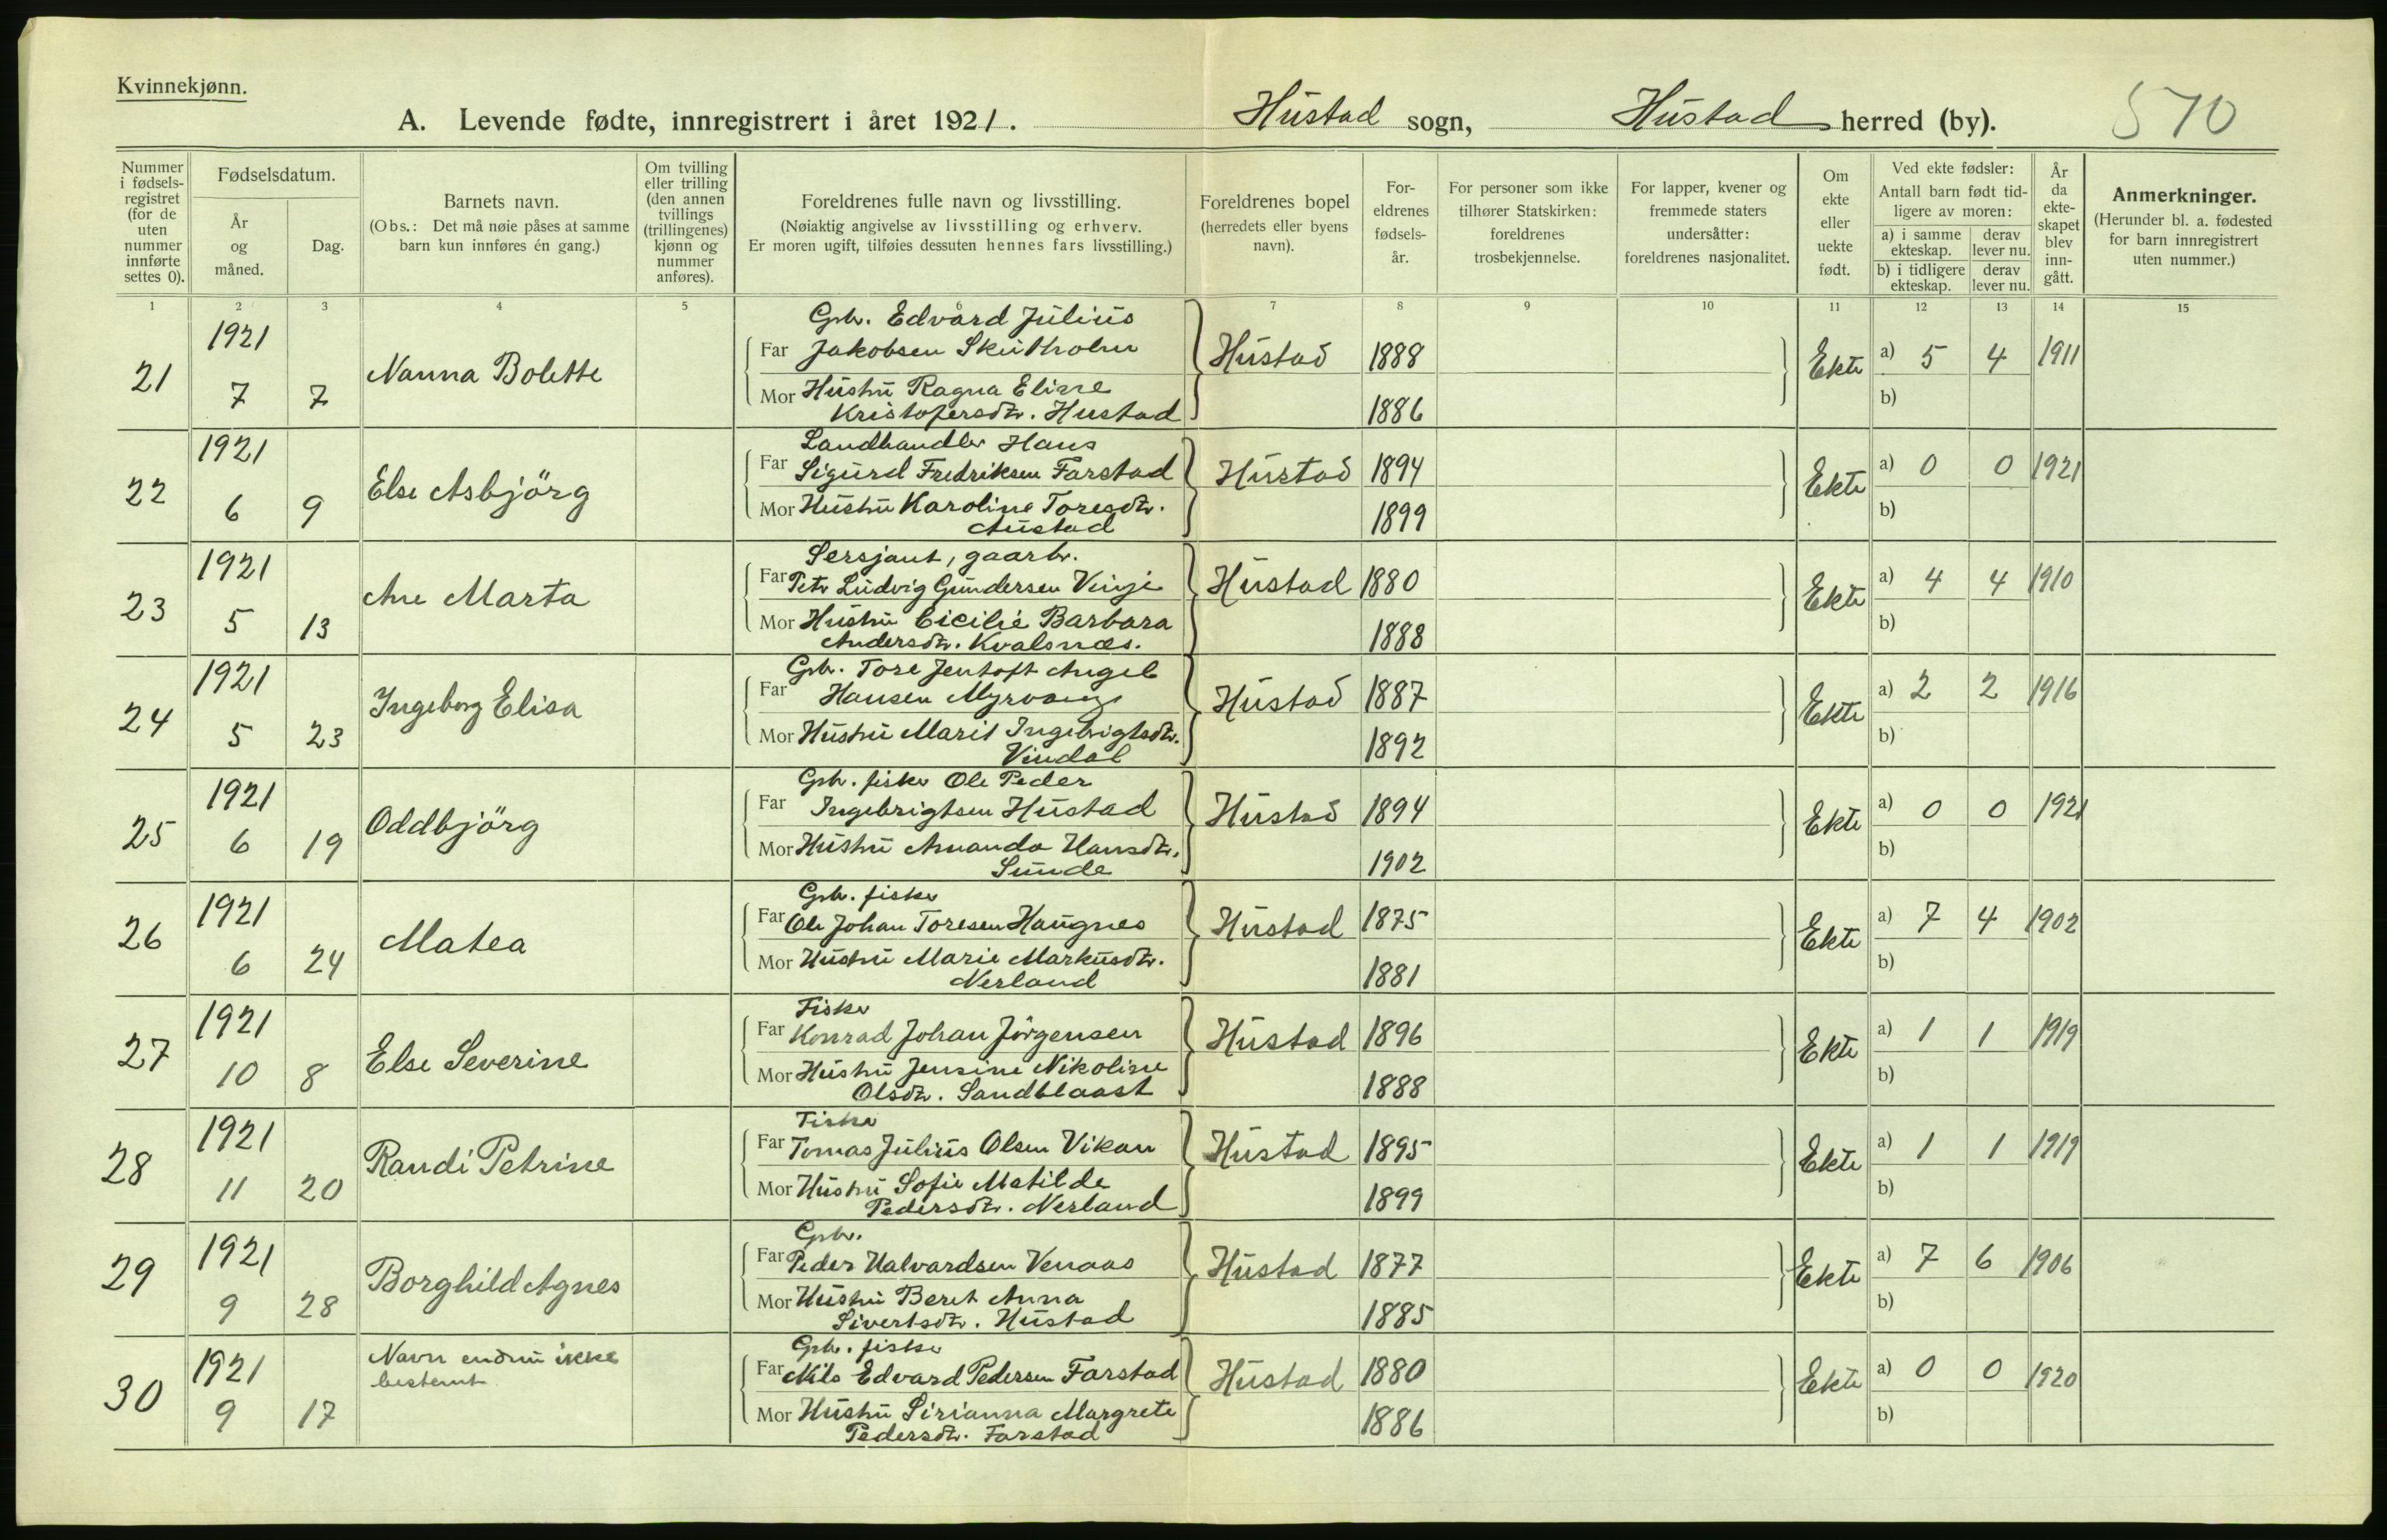 Kvinnekjønn.
A. Levende fødte, innregistrert i året 1921. Hustad sogn, Hustad herred (by). 570
Nummer i fødsels-registret (for de uten nummer innførte settes 0).
Fødselsdatum.
År og måned.
Dag.
Barnets navn.
(Obs.: Det må nøie påses at samme barn kun innføres én gang.)
Om tvilling eller trilling (den annen tvillings (trillingenes) kjønn og nummer anføres).
Foreldrenes fulle navn og livsstilling.
(Nøiaktig angivelse av livsstilling og erhverv.
Er moren ugift, tilføies dessuten hennes fars livsstilling.)
Foreldrenes bopel
(herredets eller byens navn).
For-eldrenes fødsels-år.
For personer som ikke tilhører Statskirken: foreldrenes trosbekjennelse.
For lapper, kvener og fremmede staters undersåtter: foreldrenes nasjonalitet.
Om ekte eller uekte født.
Ved ekte fødsler:
Antall barn født tid-ligere av moren:
a) i samme ekteskap. derav lever nu.
b) i tidligere ekteskap. derav lever nu.
År da ekte-skapet blev inn-gått.
Anmerkninger.
(Herunder bl. a. fødested for barn innregistrert uten nummer.)
1 2 3 4 5 6 7 8 9 10 11 12 13 14 15
21 1921 7 7 Nanna Bolette
Grbr. Edvard Julius
Far Jakobsen Skutholm Hustad 1888 Ekte a) 5 4 1911
Mor Hustru Ragna Eline
Kristofersdtr. Hustad 1886 b)
22 1921 6 9 Else Asbjörg
Landhandler Hans
Far Sigurd Fredriksen Farstad Hustad 1894 Ekte a) 0 0 1921
Mor Hustru Karoline Toresdtr.
Austad 1899 b)
23 1921 5 13 Ane Marta
Sersjant, gaarbr.
Far Peter Ludvig Gundersen Vinje Hustad 1880 Ekte a) 4 4 1910
Mor Hustru Cicilie Barbara
Andersdtr. Kvalsnæs. 1888 b)
24 1921 5 23 Ingeborg Elisa
Gbr. Tore Jentoft Angel
Far Hansen Myrvang Hustad 1887 Ekte a) 2 2 1916
Mor Hustru Marit Ingebrigtsdtr.
Vindal 1892 b)
25 1921 6 19 Oddbjörg
Grbr. fisker Ole Peder
Far Ingebrigtsen Hustad Hustad 1894 Ekte a) 0 0 1921
Mor Hustru Amanda Hansdtr.
Sunde 1902 b)
26 1921 6 24 Matea
Grbr. fisker
Far Ole Johan Toresen Haugnes Hustad 1875 Ekte a) 7 4 1902
Mor Hustru Marie Markusdtr.
Nerland 1881 b)
27 1921 10 8 Else Severine
Fisker
Far Konrad Johan Jörgensen Hustad 1896 Ekte a) 1 1 1919
Mor Hustru Jensine Nikoline
Olsdtr. Sandblaast 1888 b)
28 1921 11 20 Randi Petrine
Fisker
Far Tomas Julius Olsen Vikan Hustad 1895 Ekte a) 1 1 1919
Mor Hustru Sofie Matilde
Pedersdtr. Nerland 1899 b)
29 1921 9 28 Borghild Agnes
Grbr.
Far Peder Halvardsen Venaas Hustad 1877 Ekte a) 7 6 1906
Mor Hustru Beret Anna
Sivertsdtr. Hustad 1885 b)
30 1921 9 17 Navn endnu ikke bestemt
Grbr. fisker
Far Nils Edvard Pedersen Farstad Hustad 1880 Ekte a) 0 0 1920
Mor Hustru Sirianna Margrete
Pedersdtr. Farstad 1886 b)